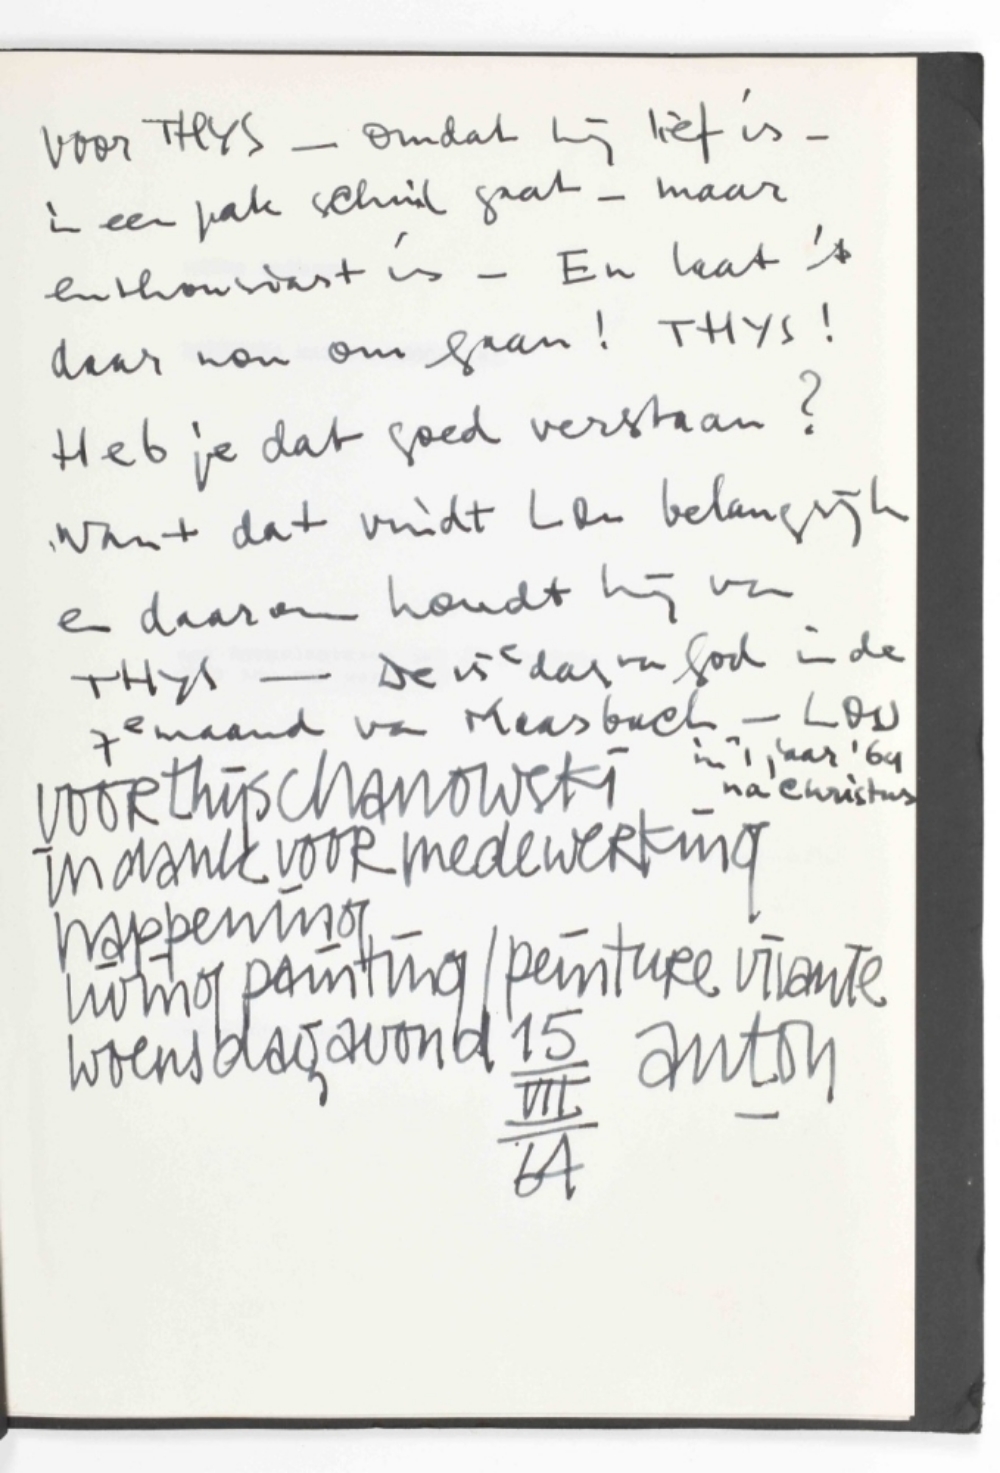 voor THYS — omdat hij lief is —
in een pak schuil gaat — maar
enthousiast is — En laat 't
daar nou om gaan! THYS!
Heb je dat goed verstaan?
Want dat vindt LOU belangrijk
en daarom houdt hij van
THYS — De 15e dag van God in de
7e maand van Maasbach — LOU
in 't jaar '64
na Christus
voor thijs chanowski
in dank voor medewerking
happening
living painting / peinture vivante
woensdagavond 15 anton
VII
64